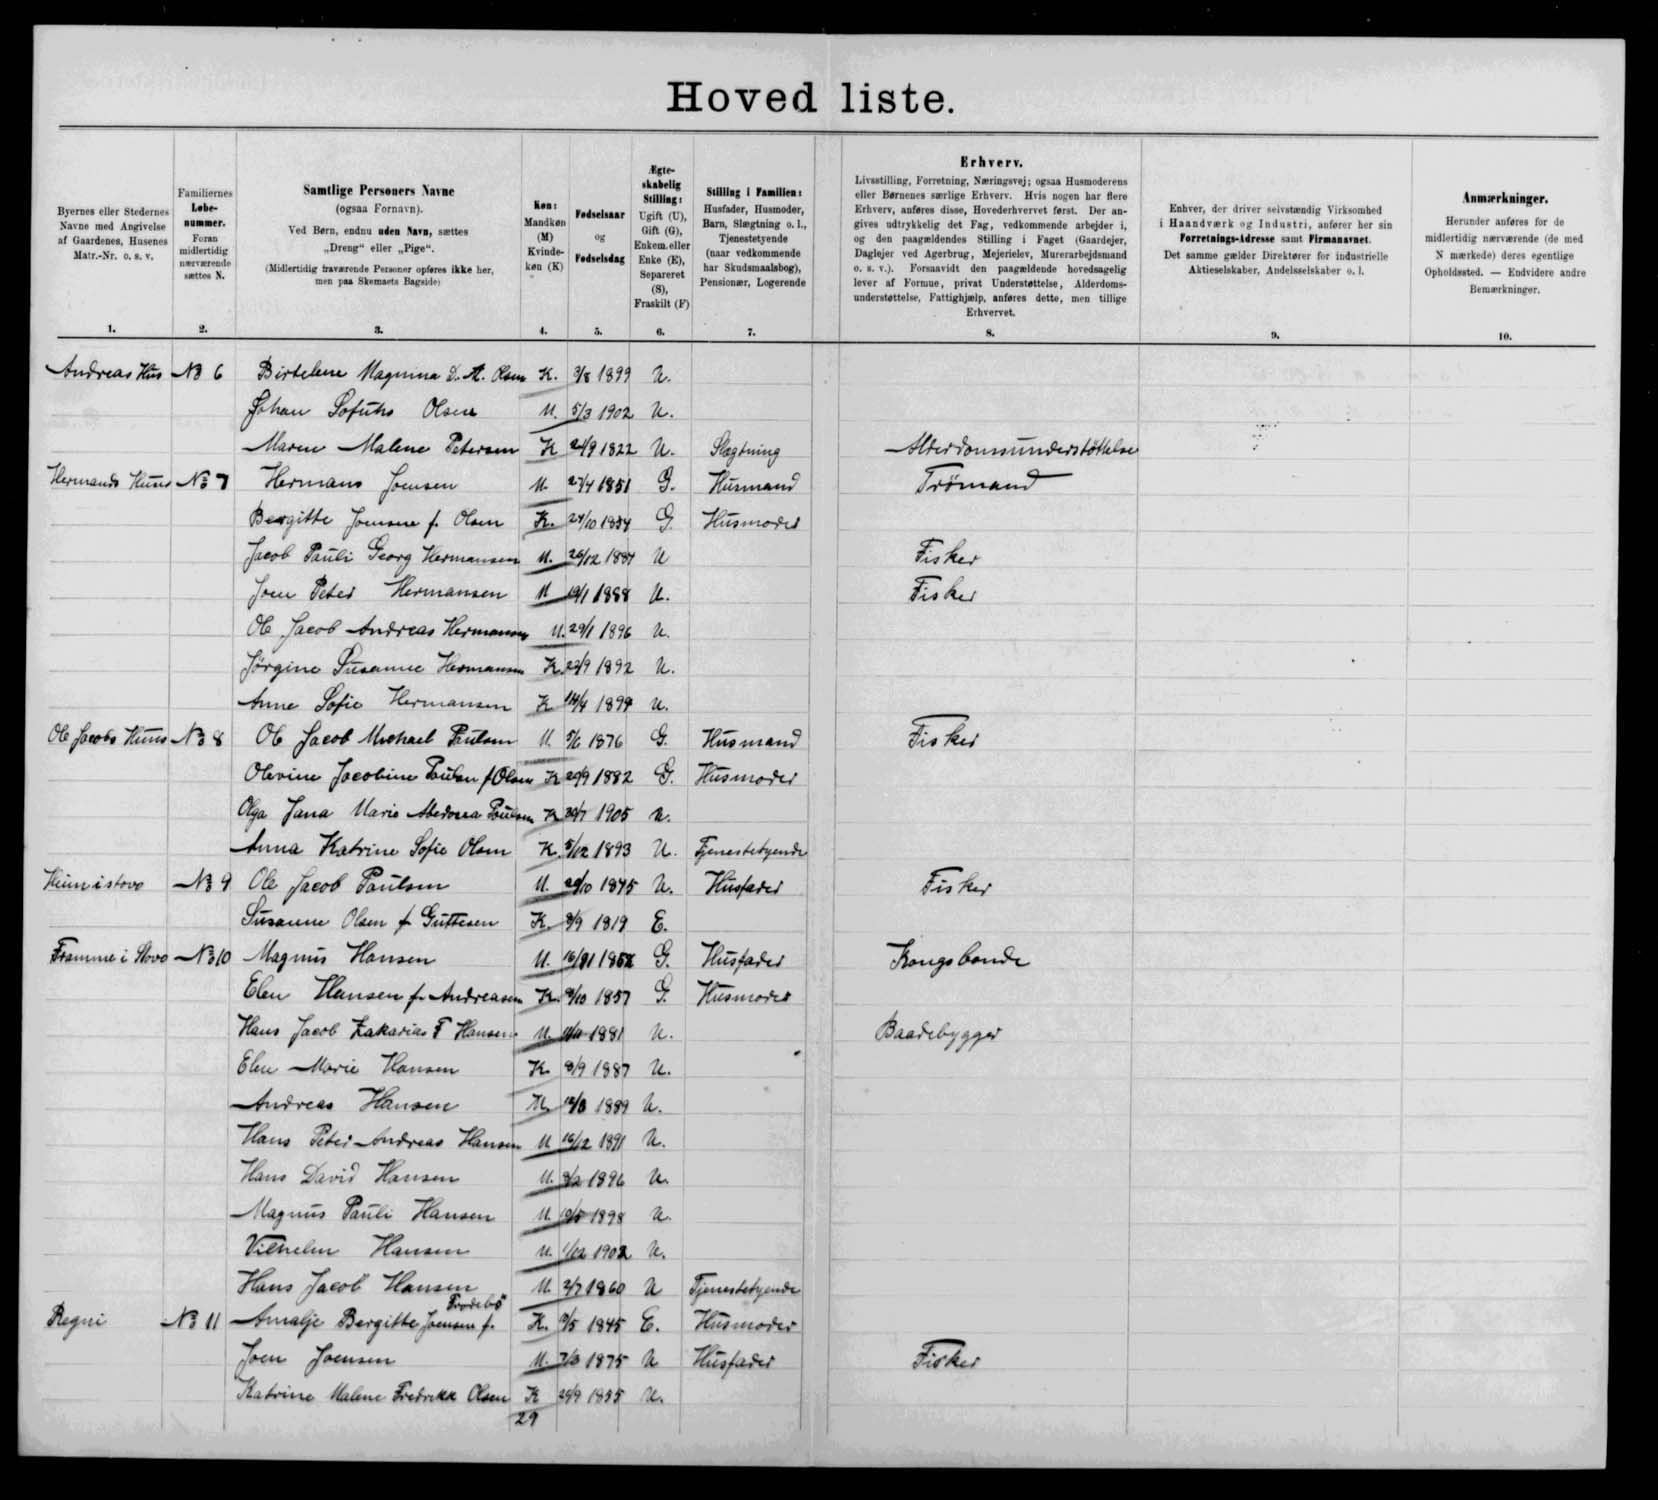 Hovedliste.
Byernes eller Stedernes
Navne med Angivelse
af Gaardenes, Husenes
Matr.-Nr. o. s. v.
1.
Familiernes
Løbe-
nummer.
Foran
midlertidig
nærværende
sættes N.
2.
Samtlige Personers Navne
(ogsaa Fornavn).
Ved Børn, endnu uden Navn, sættes
„Dreng“ eller „Pige“.
(Midlertidig fraværende Personer opføres ikke her,
men paa Skemaets Bagside)
3.
Køn:
Mandkøn
(M)
Kvinde-
køn (K)
4.
Fødselsaar
og
Fødselsdag
5.
Ægte-
skabelig
Stilling:
Ugift (U),
Gift (G),
Enkem. eller
Enke (E),
Separeret
(S),
Fraskilt (F)
6.
Stilling i Familien:
Husfader, Husmoder,
Barn, Slægtning o. l.,
Tjenestetyende
(naar vedkommende
har Skudsmaalsbog),
Pensionær, Logerende
7.
Erhverv.
Livsstilling, Forretning, Næringsvej; ogsaa Husmoderens
eller Børnenes særlige Erhverv. Hvis nogen har flere
Erhverv, anføres disse, Hovederhvervet først. Der an-
gives udtrykkelig det Fag, vedkommende arbejder i,
og den paagældendes Stilling i Faget (Gaardejer,
Daglejer ved Agerbrug, Mejerielev, Murerarbejdsmand
o. s. v.). Forsaavidt den paagældende hovedsagelig
lever af Formue, privat Understøttelse, Alderdoms-
understøttelse, Fattighjælp, anføres dette, men tillige
Erhvervet.
8.
Enhver, der driver selvstændig Virksomhed
i Haandværk og Industri, anfører her sin
Forretnings-Adresse samt Firmanavnet.
Det samme gælder Direktører for industrielle
Aktieselskaber, Andelsselskaber o. l.
9.
Anmærkninger.
Herunder anføres for de
midlertidig nærværende (de med
N mærkede) deres egentlige
Opholdssted. — Endvidere andre
Bemærkninger.
10.
Andreas Hus No 6 Birtelene Magnina D. A. Olsen K. 3/8 1899 U.
Johan Sofuhs Olsen M. 5/3 1902 U.
Maren Malene Petersen K 24/9 1822 U. Slægtning Alderdomsunderstøttelse
Hermands Huus No 7 Hermans Joensen M. 27/4 1851 G. Husmand Trömand
Bergitte Joensen f. Olsen K. 24/10 1854 G. Husmoder
Jacob Pauli Georg Hermansen M. 26/12 1884 U Fisker
Joen Peter Hermansen M 19/1 1888 U. Fisker
Ole Jacob Andreas Hermansen M. 29/1 1896 U.
Jørgine Susanne Hermansen K. 22/9 1892 U.
Anne Sofie Hermansen K 14/4 1899 U.
Ole Jacobs Huus No 8 Ole Jacob Michael Paulsen M. 5/6 1876 G. Husmand Fisker
Olevine Jacobine Poulsen f Olsen K 20/9 1882 G. Husmoder
Olga Jana Marie Poulsen K 30/7 1905 U.
Anna Katrine Sofie Olsen K. 5/12 1893 U. Tjenestetyende
Huun i stovo No 9 Ole Jacob Paulsen M. 20/10 1845 U. Husfader Fisker
Susanne Olsen f. Guttesen K. 8/9 1819 E.
Framme i Stovo No 10 Magnus Hansen M. G. Husfader Kongsbonde
Elen Hansen f. Andreasen K. 9/10 1857 G. Husmoder
Hans Jacob Zakarias F Hansen M. 1881 U. Baadebygger
Elen Marie Hansen K. 8/9 1887 U.
Andreas Hansen M 12/3 1889 U.
Hans Peter Andreas Hansen M 16/12 1891 U.
Hans David Hansen M. 8/2 1896 U.
Magnus Pauli Hansen M. 1898 U.
Vilhelm Hansen M. 1/12 1902 U.
Hans Jacob Hansen M. 2/7 1860 U Tjenestetyende
Frodebö
Regni No 11 Amalje Bergitte Joensen f. K. 9/5 1845 E. Husmoder
Joen Joensen M. 7/3 1875 U Husfader Fisker
Katrine Malene Fredrikk Olsen K 29/9 1855 U.
29